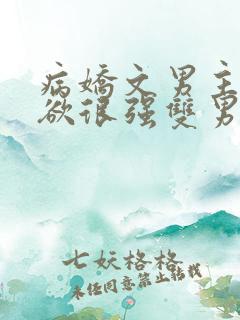 病嬌文男主
欲很强雙男
七妖格格
未任同意禁止转载